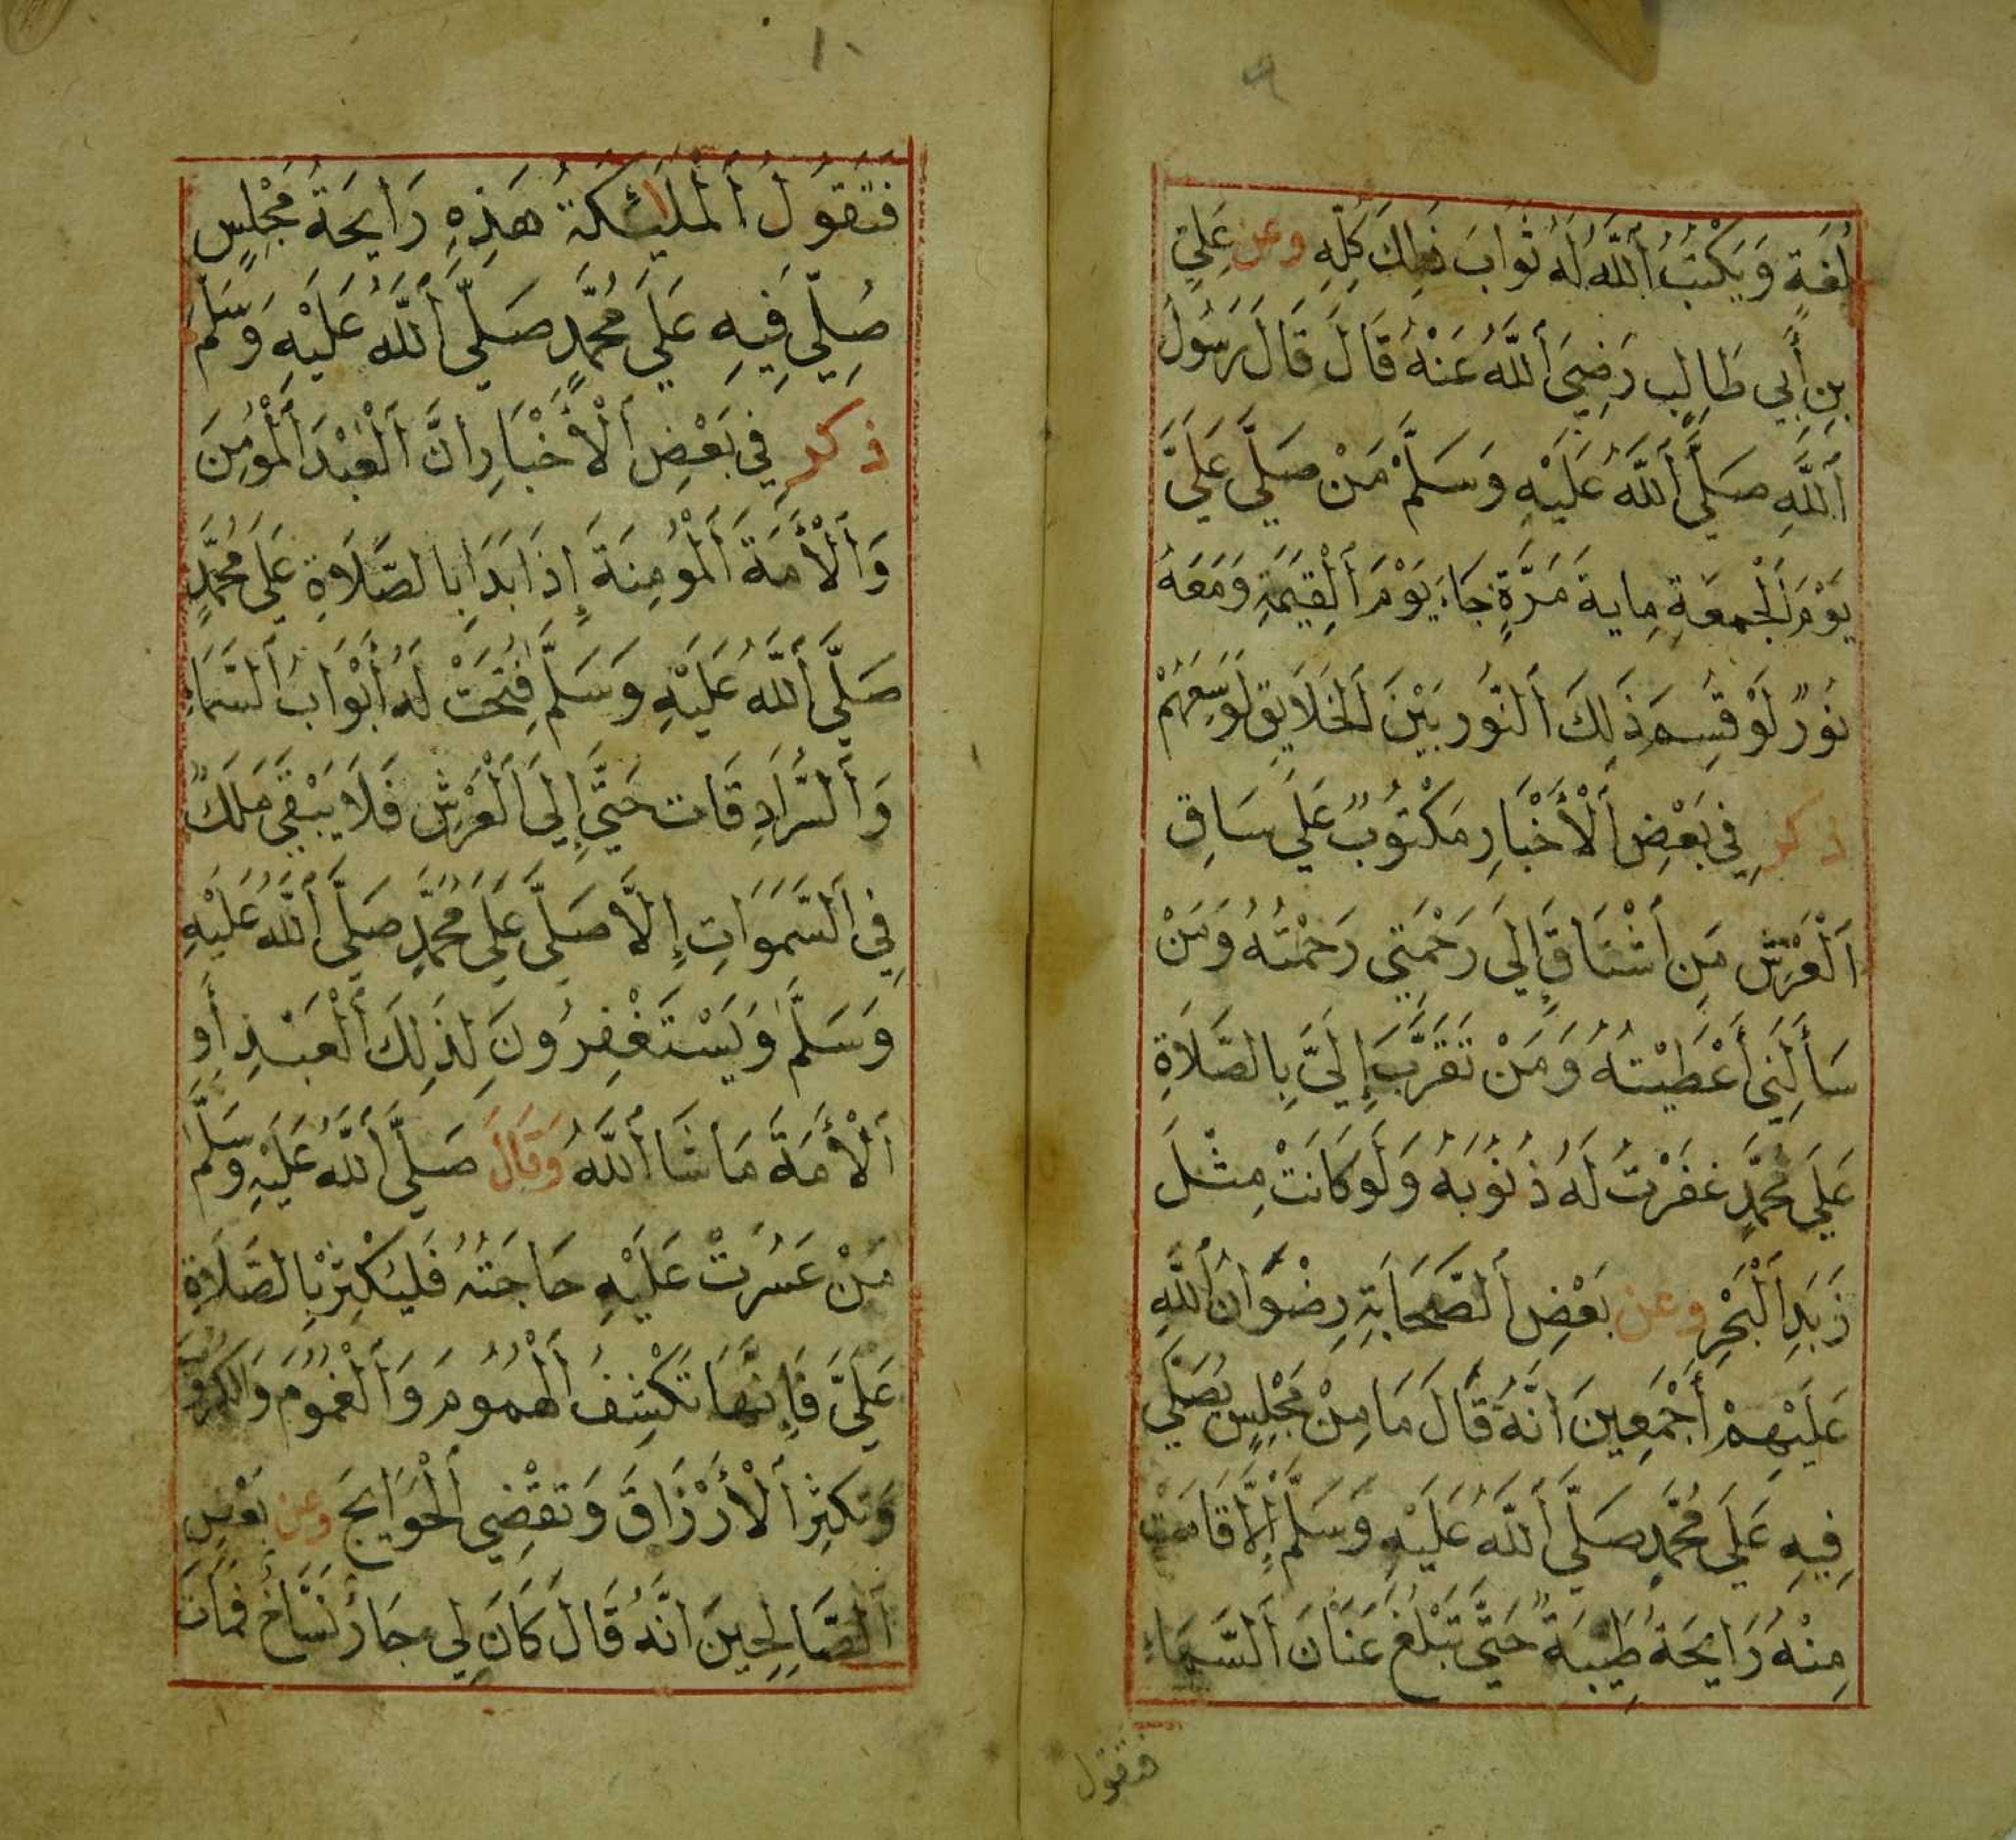 ٩
لُغَةٍ وَيَكْتُبُ اَللّٰهُ لَهُ ثَوَابَ ذٰلِكَ كُلِّهِ وعن عَلِيِّ
بِنِ أَبِي طَالِبٍ رَضِيَ اَللّٰهُ عَنْهُ قَالَ قَالَ رَسُولُ
اَللّٰهِ صَلَّي اَللّٰهُ عَلَيْهِ وَسَلَّمْ مَنْ صَلَّي عَلَيَّ
يَوْمَ اَلْجُمعَةِ مِايةَ مَرَّةٍ جَاءَ يَوْمَ اَلْقِيٰمَةِ وَمَعَهُ
نُورٌ لَوْ قُسِمَ ذَلِكَ اَلنُّورُ بَيْنَ اَلْخَلَايِقِ لَوَسِعَهُمْ
ذكر فِي بَعْضِ اَلْأَخْبَارِ مَكْتُوبٌ عَلَي سَاقِ
اَلْعَرْشِ مَنِ اَشْتَاقَ إِلَي رَحْمَتِي رَحْمْتُهُ وَمَنْ
سَأَلَنِي أَعْطَيْتُهُ وَمَنْ تَقَرَّبَ إِلَيَّ بِالصَّلَاةِ
عَلَي مُحَمَّدٍ غَفَرْتُ لَهُ ذُنُوبَهُ وَلَوكَانَتْ مِثْلَ
زَبَدِ اَلْبَحْرِ وعن بَعْضِ اَلصَّحَابَةِ رِضْوَانُ اَللّٰهِ
عَلَيْهِمْ أَجْمَعِينَ اَنَّهُ قَالَ مَا مِنْ مَجْلِسٍ يُصَلَّي
فِيهِ عَلَي مُحَمَّدٍ صَلَّي اَللّٰهُ عَلَيْهِ وَسَلَّمْ إِلَّا قَامَتْ
مِنْهُ رَايِحَةٌ طَيِّبَةٌ حَتَّي تَبْلُغَ عَنَانَ اَلسَّمَاءِ
فتقول
١٠
فَتَقُولُ اَلْمَلَائِكَةُ هَذِهِ رَايِحَةُ مَجْلِسٍ
صُلِّيَ فِيهِ عَلَي مُحَمَّدٍ صَلَّي اَللّٰهُ عَلَيْهِ وَسَلَّمَ
ذكر فِي بَعْضِ اَلْأَخْبَارِ اَنَّ اَلْعَبْدَ اَلْمُؤْمِنَ
وَاَلْأَمَةَ اَلْمُؤمِنَةَ إِذَا بَدَا بِالصَّلَاةِ عَلَي مُحَمَّدٍ
صَلَّي اَللّٰهُ عَلَيْهِ وَسَلَّمْ فُتِحَتْ لَهُ أَبْوَابُ اَلسَّمَاءِ
وَاَلسُّرَادِقَات حَتَّي إِلَي اَلْعَرْشِ فَلَا يَبْقَي مَلَكٌ
فِي اَلسَّمَوَاتِ إِلَّا صَلَّي عَلَي مُحَمَّدٍ صَلَّي اَللّٰهُ عَلَيْهِ
وَسَلَّمْ وَيَسْتَغْفِرُونَ لِذَلِكَ اَلْعَبْدِ أَوِ
اَلْأَمَةِ مَا شَا اَللّٰهُ وَقَالَ صَلَّي اَللّٰهُ عَلَيْهِ وَسَلَّمَ
مَنْ عَسُرَتْ عَلَيْهِ حَاجَتُهُ فَليُكْثِرْ بِالصَّلَاةِ
عَلَيَّ فَإِنَّهَا تَكْشِفُ اَلْهُمُومَ وَاَلْغُمُومَ وَالْكُرُوبَ
وَتكثِرُ اَلْأَرْزَاقَ وَتَقْضِي اَلْحَوَايِجَ وعن بَعْضِ
اَلصَّالِحِينَ اَنَّهُ قَالَ كَانَ لِي جَارٌ نَسَّاخٌ فَمَاتَ